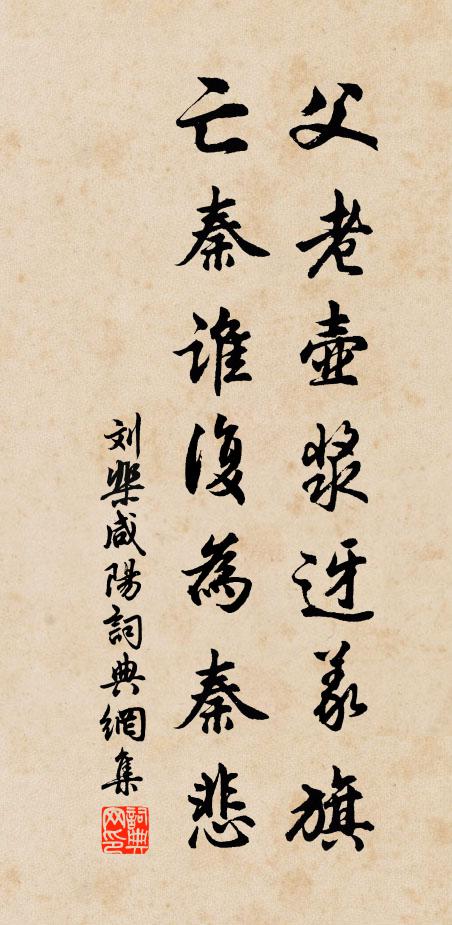 父老壺漿迓义旗
亡秦誰復為秦悲
刘槩咸陽詞典網集
詞典网印